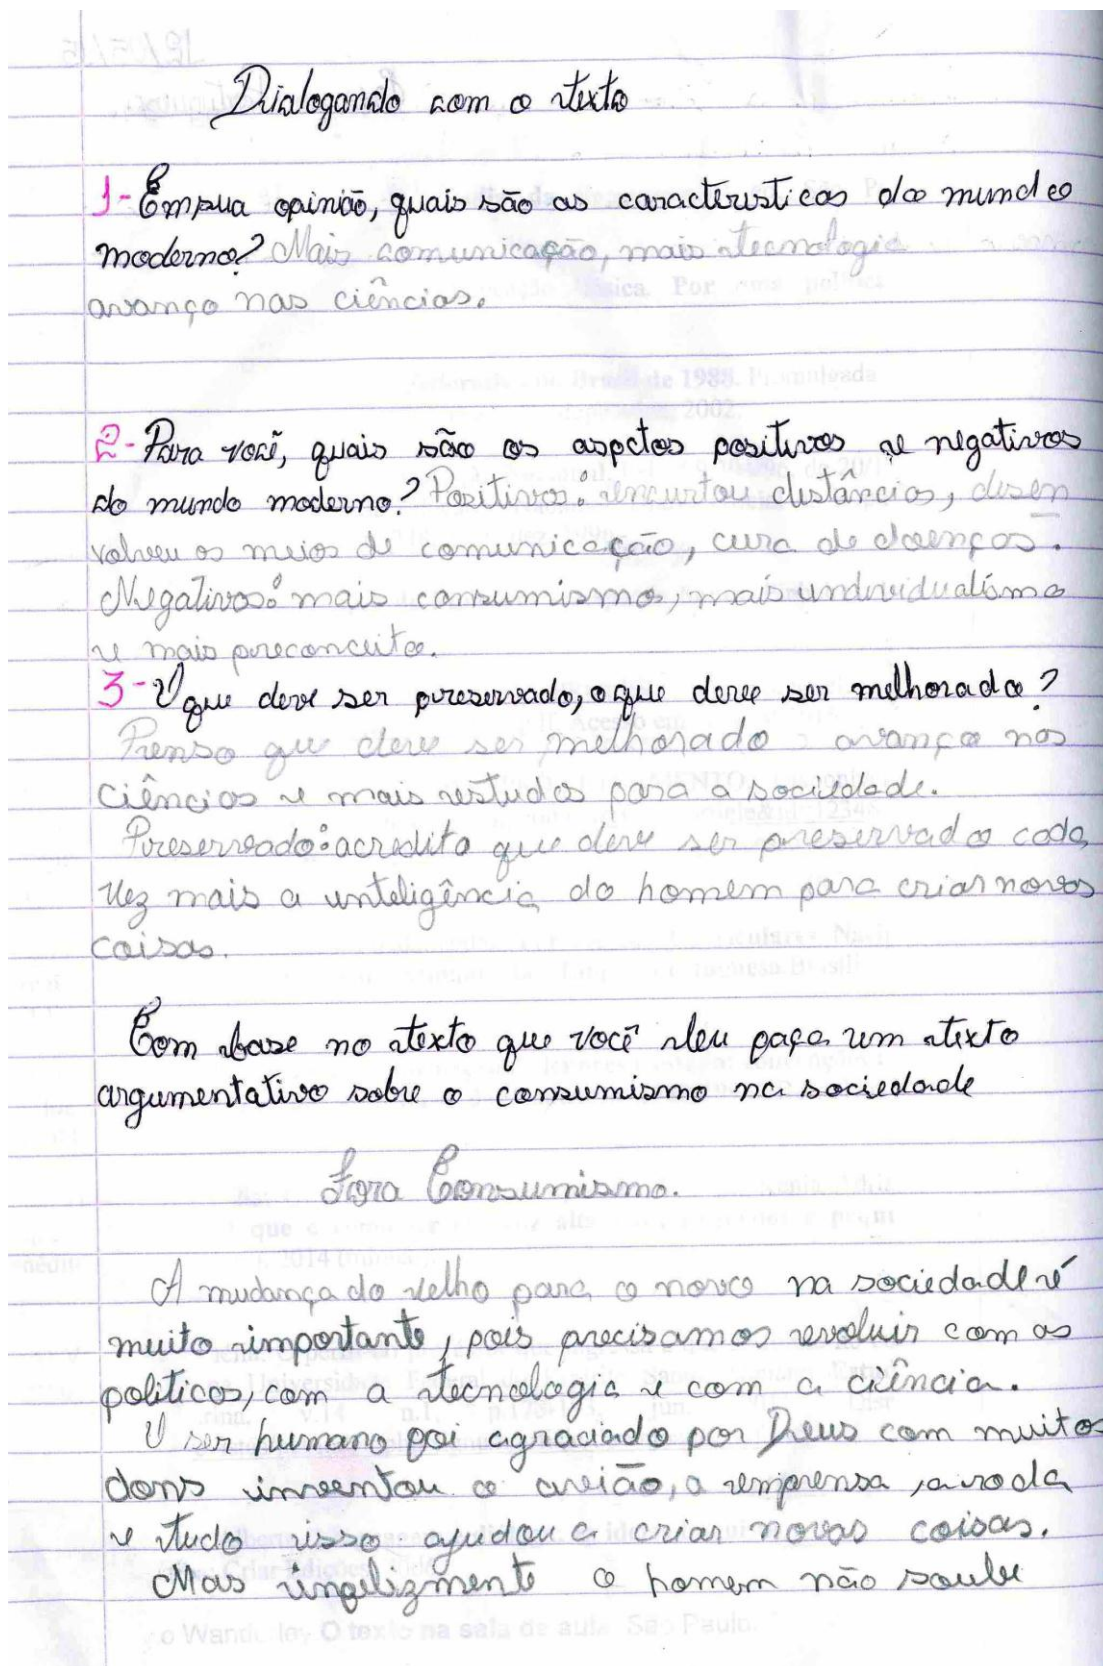 Dialogando com o texto
1- Em sua opinião, quais são as caracteristicas do mundo
moderno? Mais comunicação, mais tecnologia
avanço nas ciências.
2- Para você, quais são os aspctos positivos e negativos
do mundo moderno? Positivos: encurtou distâncias, desen
volveu os meios de comunicação, cura de doenças.
Negativos: mais consumismo, mais individualismo
e mais preconceito.
3- O que deve ser preservado, o que deve ser melhorado?
Penso que deve ser melhorado: avanço nas
ciências e mais estudos para a sociedade.
Preservado: acredito que deve ser preservado cada
vez mais a inteligência do homem para criar novas
coisas.
Com base no texto que você leu faça um texto
argumentativo sobre o consumismo na sociedade
Fora Consumismo.
A mudança do velho para o novo na sociedade é
muito importante, pois precisamos evoluir com os
politicos, com a tecnologia e com a ciência.
O ser humano foi agraciado por Deus com muitos
dons inventou o avião, a emprensa, a roda
e tudo isso ajudou a criar novas coisas.
Mas infelizmente o homem não soube